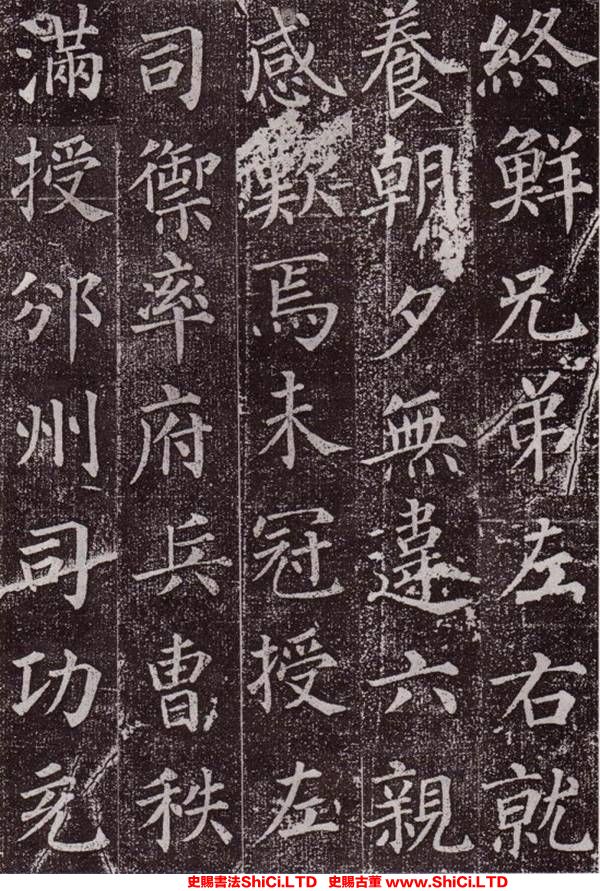 終鮮兄弟左右就
養朝夕無違六親
感歎焉未冠授左
司禦率府兵曹秩
滿授邠州司功充
史賜書法ShiCi.LTD 史賜古董 www.ShiCi.LTD